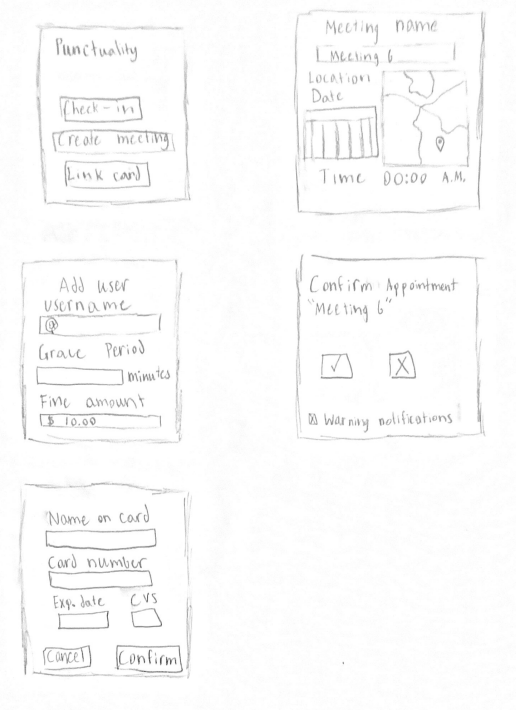 Punctuality
Check-in
Create meeting
Link card
Meeting name
Meeting 6
Location
Date
Time 00:00 A.M.
Add user
username
@
Grace Period
minutes
Fine amount
$ 10.00
Confirm Appointment
"Meeting 6"
✓ X
☒ Warning notifications
Name on card
Card number
Exp. date CVS
Cancel Confirm